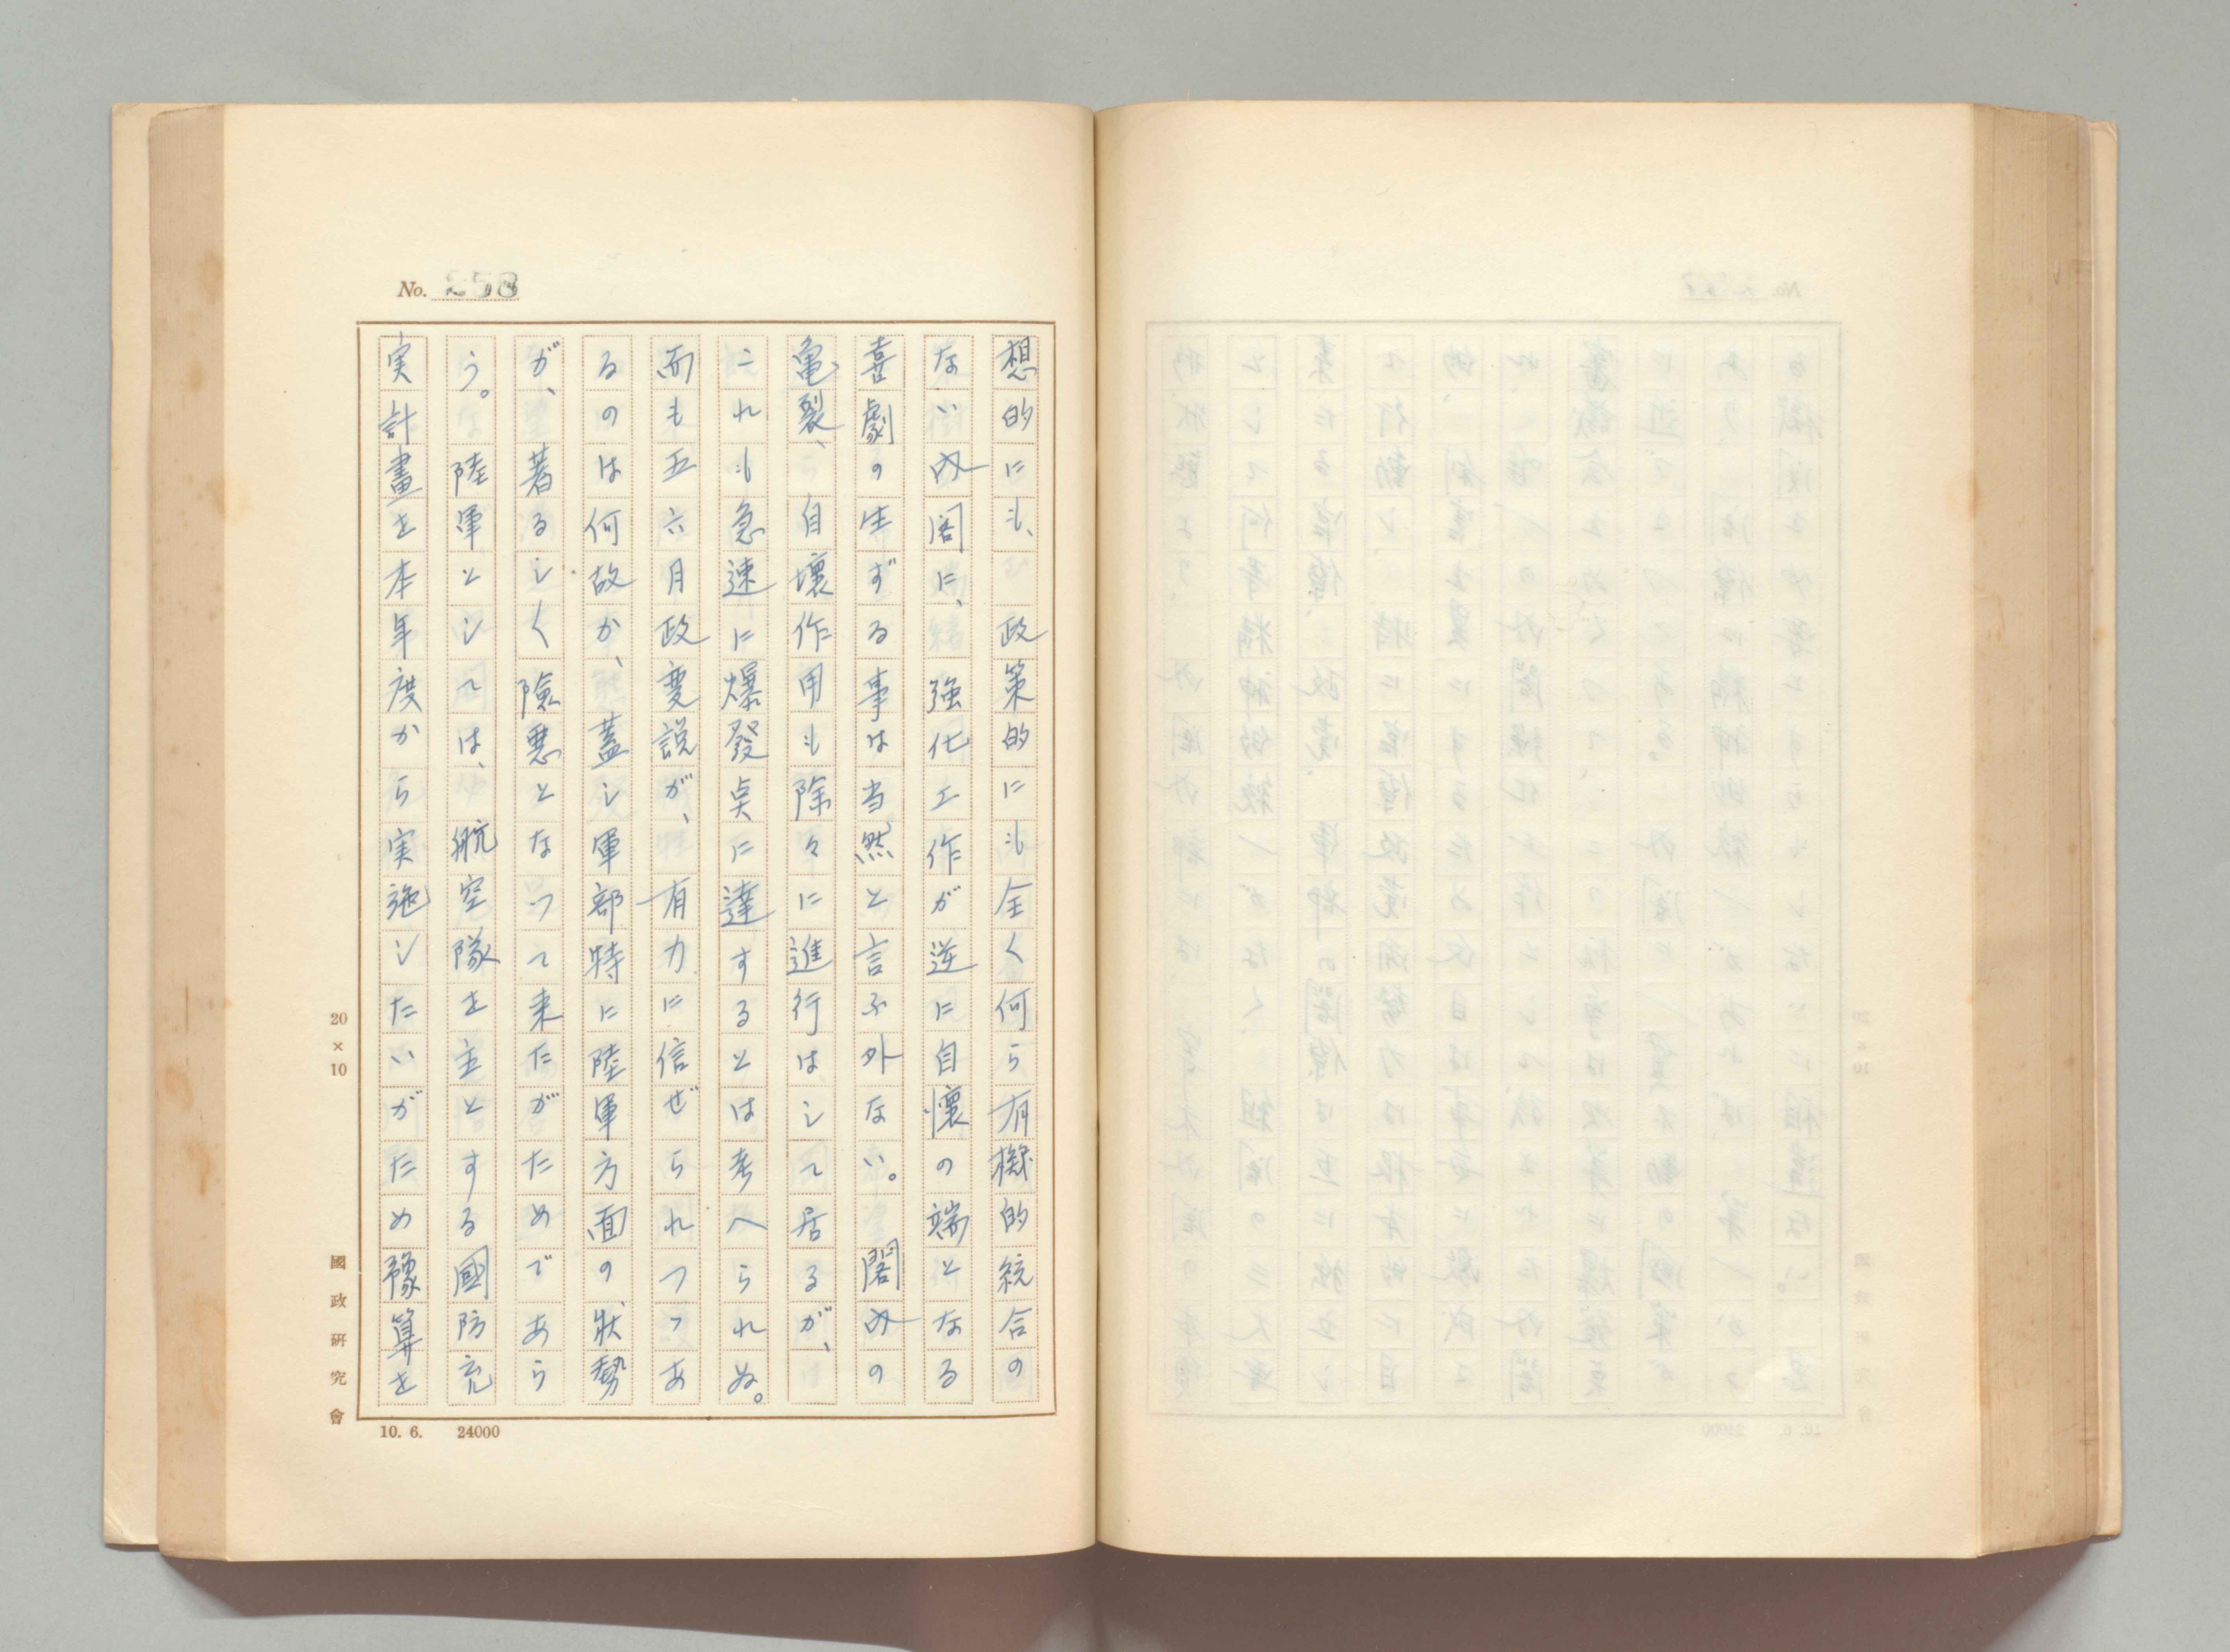 No. 258
想的にも、政策的にも全く何ら有機的統合の
ない内閣に、強化工作が逆に自懐の端となる
喜劇の生ずる事は当然と言ふ外ない。閣内の
亀裂、自壊作用も除々に進行はして居るが、
これも急速に爆発点に達するとは考へられぬ。
而も五六月政変説が、有力に信ぜられつつあ
るのは何故か、蓋し軍部特に陸軍方面の狀勢
が、著るしく険悪となつて来たがためであら
う。陸軍としては、航空隊を主とする国防充
実計畫を本年度から実施したいがため豫算を
20×10
國政研究會
10. 6. 24000